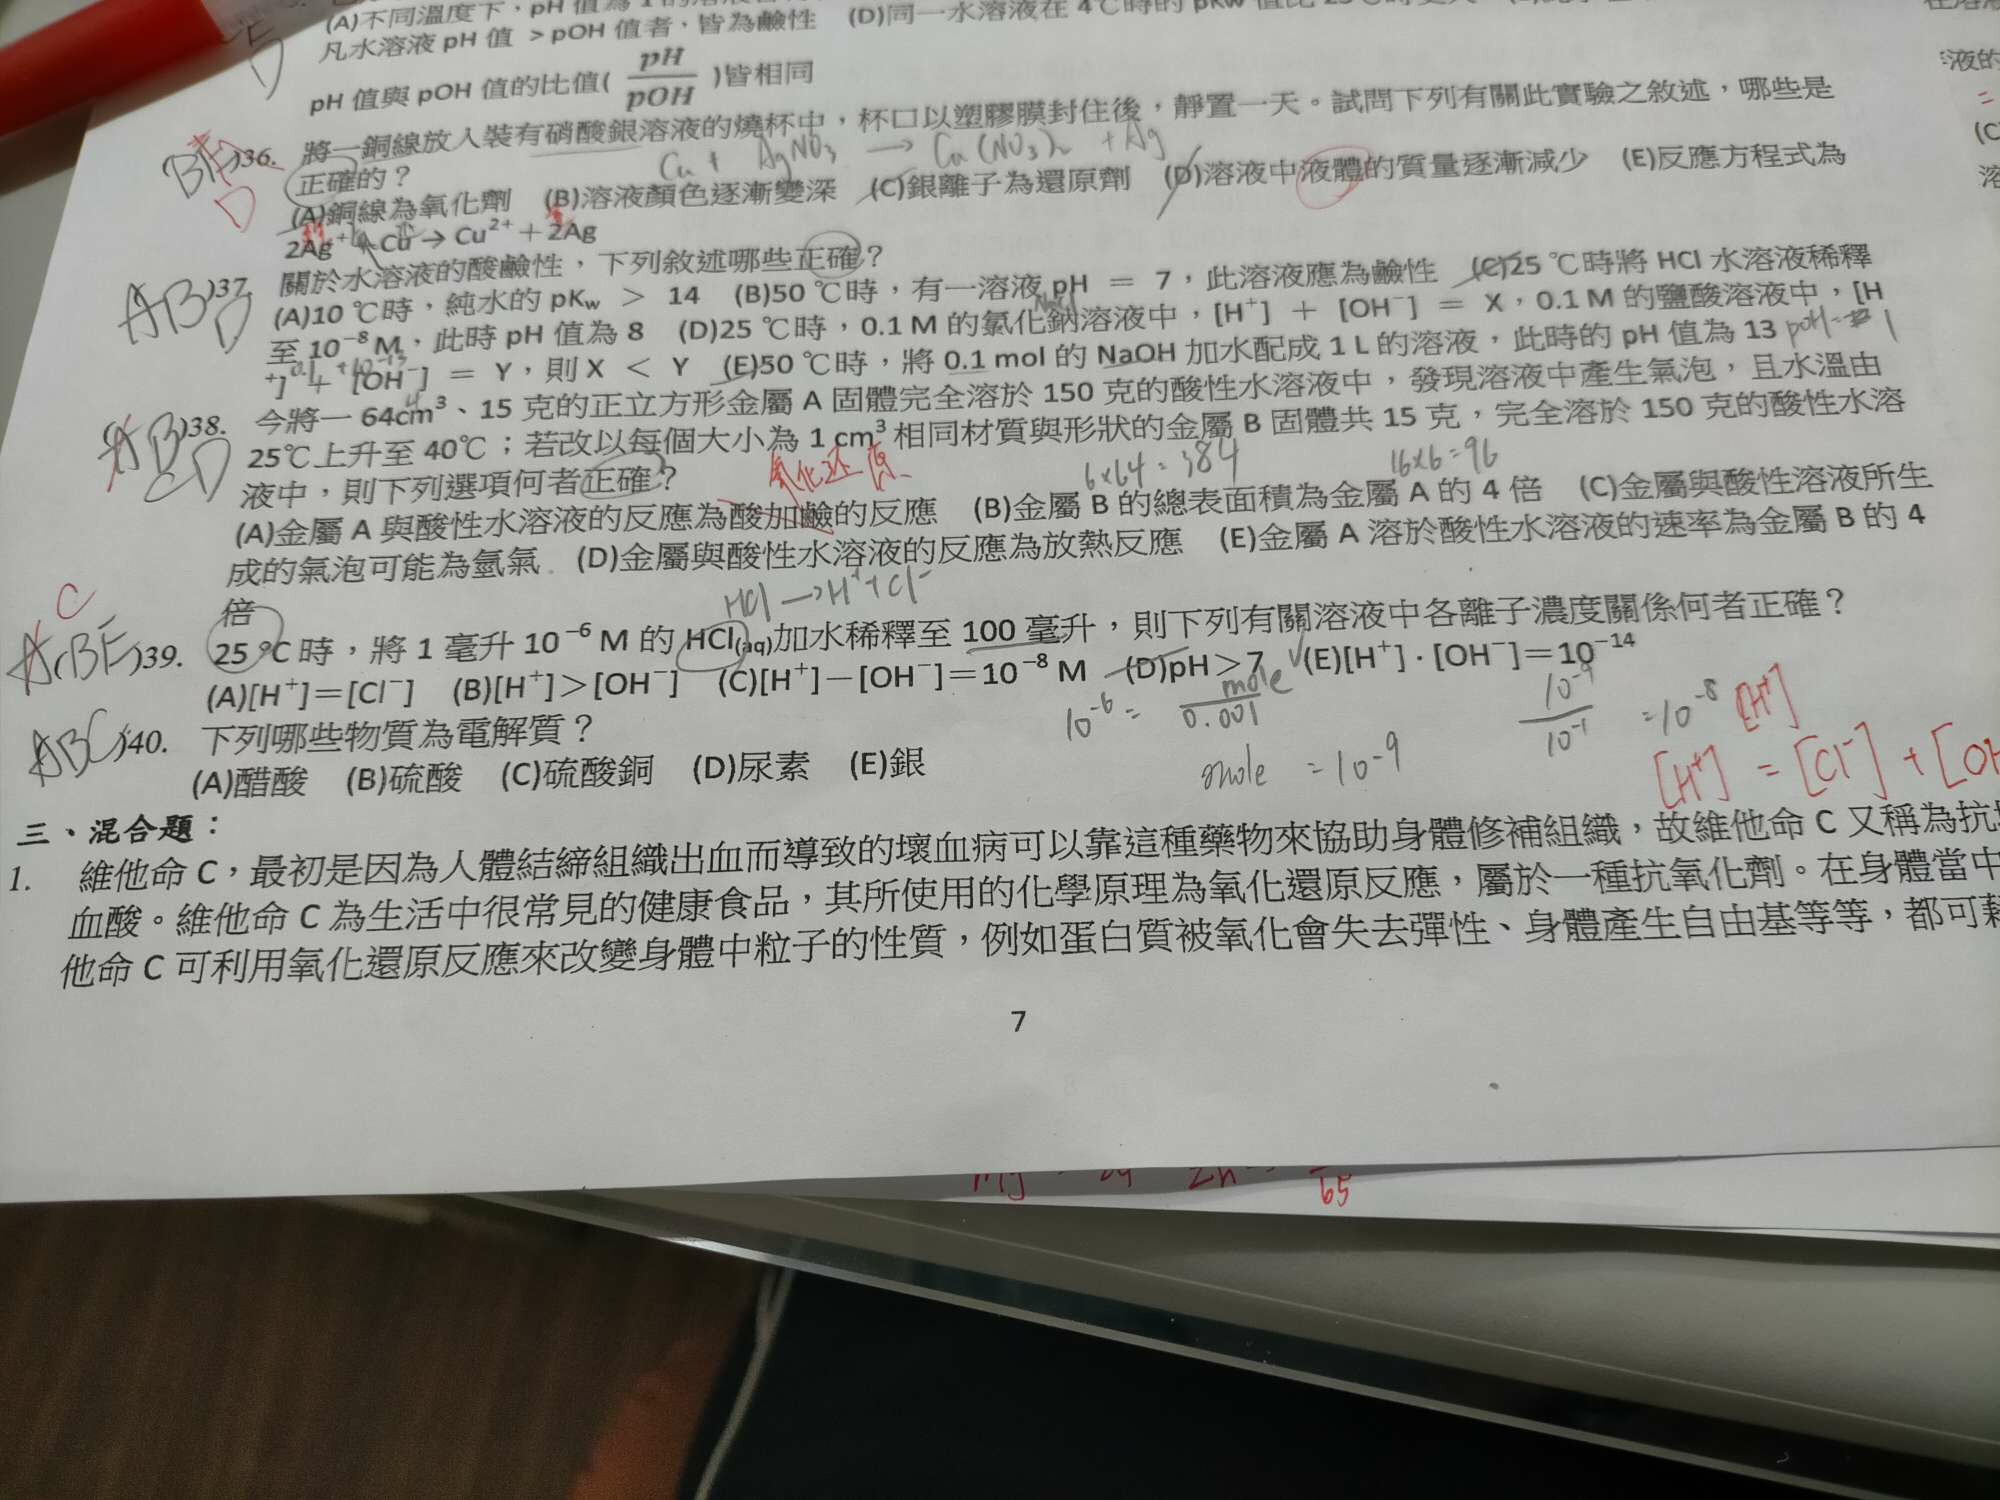 (A)不同溫度下，pH 值為 1 的溶液
凡水溶液 pH 值 > pOH 值者，皆為鹼性 (D)同一水溶液在 4℃時的 pKw 值比 25℃時
pH 值與 pOH 值的比值( pH/pOH )皆相同
36. 將一銅線放入裝有硝酸銀溶液的燒杯中，杯口以塑膠膜封住後，靜置一天。試問下列有關此實驗之敘述，哪些是
Cu + AgNO3 → Cu(NO3)2 + Ag
正確的？
(A)銅線為氧化劑 (B)溶液顏色逐漸變深 (C)銀離子為還原劑 (D)溶液中液體的質量逐漸減少 (E)反應方程式為
2Ag⁺ + Cu → Cu²⁺ + 2Ag
ABD
37. 關於水溶液的酸鹼性，下列敘述哪些正確？
(A)10 ℃時，純水的 pKw > 14 (B)50 ℃時，有一溶液 pH = 7，此溶液應為鹼性 (C)25 ℃時將 HCl 水溶液稀釋
至 10⁻⁸ M，此時 pH 值為 8 (D)25 ℃時，0.1 M 的氯化鈉溶液中，[H⁺] + [OH⁻] = X，0.1 M 的鹽酸溶液中，[H
⁺] + [OH⁻] = Y，則 X < Y (E)50 ℃時，將 0.1 mol 的 NaOH 加水配成 1 L 的溶液，此時的 pH 值為 13
ABCD
38. 今將一 64cm³、15 克的正立方形金屬 A 固體完全溶於 150 克的酸性水溶液中，發現溶液中產生氣泡，且水溫由
25℃上升至 40℃；若改以每個大小為 1 cm³ 相同材質與形狀的金屬 B 固體共 15 克，完全溶於 150 克的酸性水溶
液中，則下列選項何者正確？
氧化还原
6×64=384
16×6=96
(A)金屬 A 與酸性水溶液的反應為酸加鹼的反應 (B)金屬 B 的總表面積為金屬 A 的 4 倍 (C)金屬與酸性溶液所生
成的氣泡可能為氫氣 (D)金屬與酸性水溶液的反應為放熱反應 (E)金屬 A 溶於酸性水溶液的速率為金屬 B 的 4
倍
HCl → H⁺ + Cl⁻
C
ABE
39. 25 ℃時，將 1 毫升 10⁻⁶ M 的 HCl(aq)加水稀釋至 100 毫升，則下列有關溶液中各離子濃度關係何者正確？
(A)[H⁺]=[Cl⁻] (B)[H⁺]>[OH⁻] (C)[H⁺]−[OH⁻]=10⁻⁸ M (D)pH>7 (E)[H⁺]·[OH⁻]=10⁻¹⁴
10⁻⁶ = mole/0.001
mole = 10⁻⁹
10⁻⁹/10⁻¹ = 10⁻⁸ [H⁺]
[H⁺] = [Cl⁻] + [OH
ABC
40. 下列哪些物質為電解質？
(A)醋酸 (B)硫酸 (C)硫酸銅 (D)尿素 (E)銀
三、混合題：
1. 維他命 C，最初是因為人體結締組織出血而導致的壞血病可以靠這種藥物來協助身體修補組織，故維他命 C 又稱為抗壞
血酸。維他命 C 為生活中很常見的健康食品，其所使用的化學原理為氧化還原反應，屬於一種抗氧化劑。在身體當中
他命 C 可利用氧化還原反應來改變身體中粒子的性質，例如蛋白質被氧化會失去彈性、身體產生自由基等等，都可藉
7
65